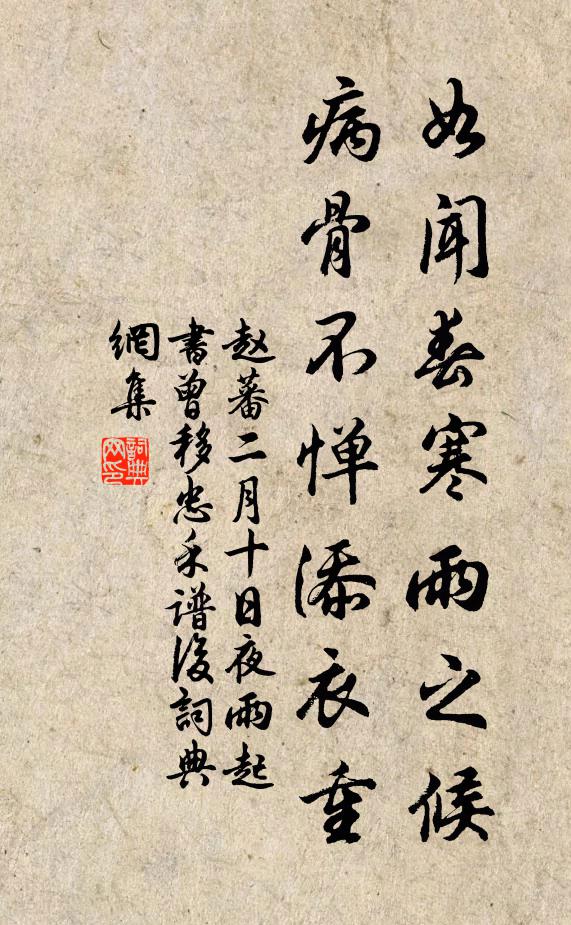 如闻春寒雨之候
病骨不惮添衣重
赵蕃二月十日夜雨起
書曾移忠禾谱後詞典
網集
詞典網印